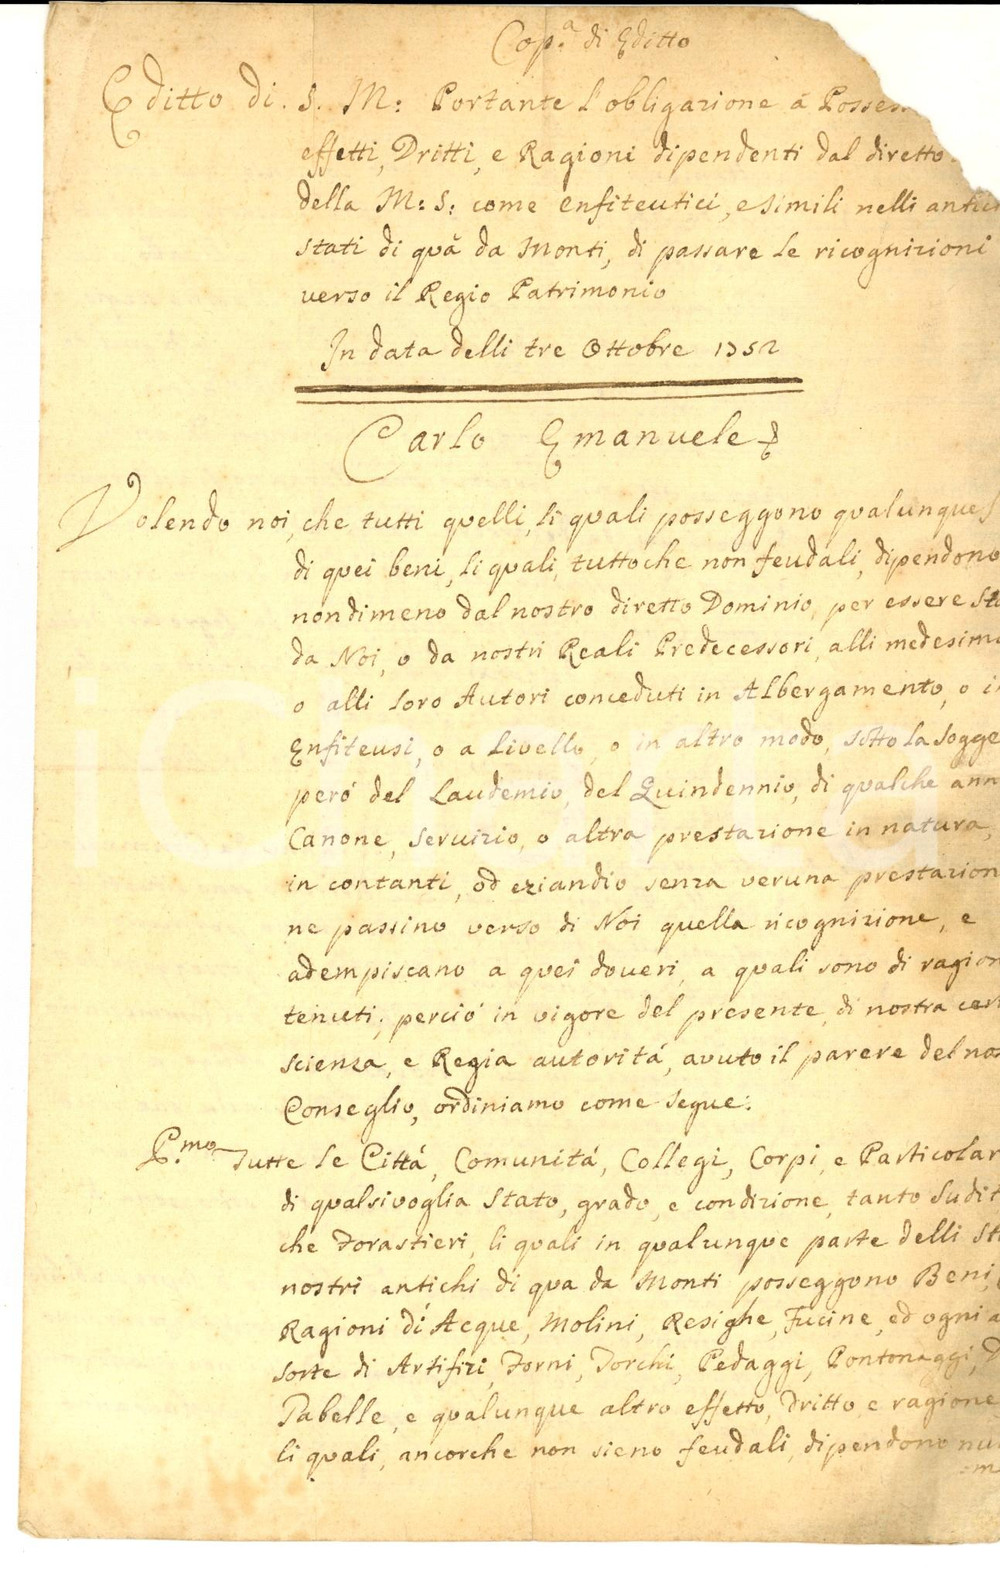 Cop.a di Editto
Editto di S. M: Portante l'obligazione á Possess
effetti, Dritti, e Ragioni dipendenti dal diretto
della M: S: come enfiteutici, e simili nelli antic
stati di quá da Monti, di passare le ricognizioni
verso il Regio Patrimonio
In data delli tre Ottobre 1752
Carlo Emanuele
Volendo noi, che tutti quelli, li quali posseggono qualunque
di quei beni, li quali, tuttoche non feudali, dipendono
nondimeno dal nostro diretto Dominio, per essere sta
da Noi, o da nostri Reali Predecessori, alli medesimi
o alli loro Autori conceduti in Albergamento, o in
Enfiteusi, o a livello, o in altro modo, sotto la sogge
peró del Laudemio, del Quindennio, di qualche ann
Canone, servizio, o altra prestazione in natura,
in contanti, od eziandio senza veruna prestazion
ne passino verso di Noi quella ricognizione, e
adempiscano a quei doveri, a quali sono di ragion
tenuti; perció in vigore del presente, di nostra cert
scienza, e Regia autoritá, avuto il parere del nos
Conseglio, ordiniamo come segue:
P.mo Tutte le Cittá, Comunitá, Collegi, Corpi, e Particolar
di qualsivoglia stato, grado, e condizione, tanto sudit
che Forastieri, li quali in qualunque parte delli sta
nostri antichi di qua da Monti posseggono Beni,
Ragioni di Acque, Molini, Resighe, Fucine, ed ogni a
sorte di Artifizi, Forni, Torchi, Pedaggi, Pontonaggi, D
Tabelle, e qualunque altro effetto, dritto, e ragione
li quali, ancorche non sieno feudali, dipendono nul
=m